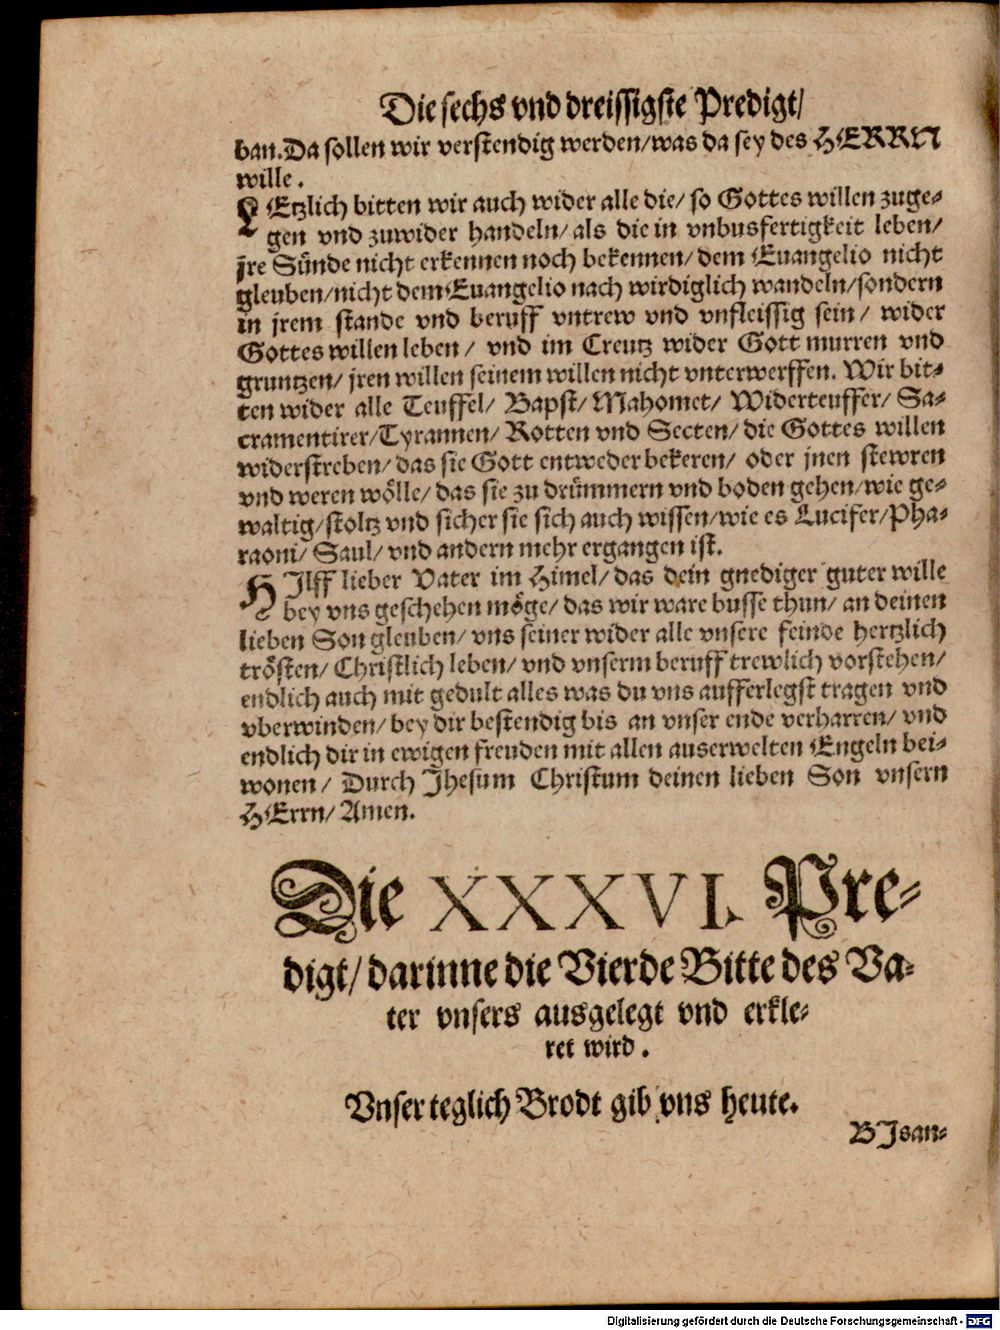 Die sechs vnd dreissigste Predigt/
ban. Da sollen wir verstendig werden/was da sey des HERRN
wille.
LEtzlich bitten wir auch wider alle die/ so Gottes willen zuge-
gen vnd zuwider handeln/ als die in vnbusfertigkeit leben/
jre Sünde nicht erkennen noch bekennen/ dem Euangelio nicht
gleuben/nicht dem Euangelio nach wirdiglich wandeln/sondern
in jrem stande vnd beruff vntrew vnd vnfleissig sein/ wider
Gottes willen leben/ vnd im Creutz wider Gott murren vnd
gruntzen/ jren willen seinem willen nicht vnterwerffen. Wir bit-
ten wider alle Teuffel/ Bapst/ Mahomet/ Widerteuffer/ Sa-
cramentirer/Tyrannen/ Rotten vnd Secten/ die Gottes willen
widerstreben/ das sie Gott entweder bekeren/ oder jnen stewren
vnd weren wölle/ das sie zu drümmern vnd boden gehen/wie ge-
waltig/stoltz vnd sicher sie sich auch wissen/wie es Lucifer/Pha-
raoni/ Saul/ vnd andern mehr ergangen ist.
HIlff lieber Vater im Himel/ das dein gnediger guter wille
bey vns geschehen möge/ das wir ware busse thun/ an deinen
lieben Son gleuben/ vns seiner wider alle vnsere feinde hertzlich
trösten/ Christlich leben/ vnd vnserm beruff trewlich vorstehen/
endlich auch mit gedult alles was du vns aufferlegst tragen vnd
vberwinden/ bey dir bestendig bis an vnser ende verharren/ vnd
endlich dir in ewigen freuden mit allen auserwelten Engeln bei-
wonen/ Durch Jhesum Christum deinen lieben Son vnsern
HErrn/ Amen.
Die XXXVI. Pre-
digt/ darinne die Vierde Bitte des Va-
ter vnsers ausgelegt vnd erkle-
ret wird.
Vnser teglich Brodt gib vns heute.
BJsan-
Digitalisierung gefördert durch die Deutsche Forschungsgemeinschaft - DFG